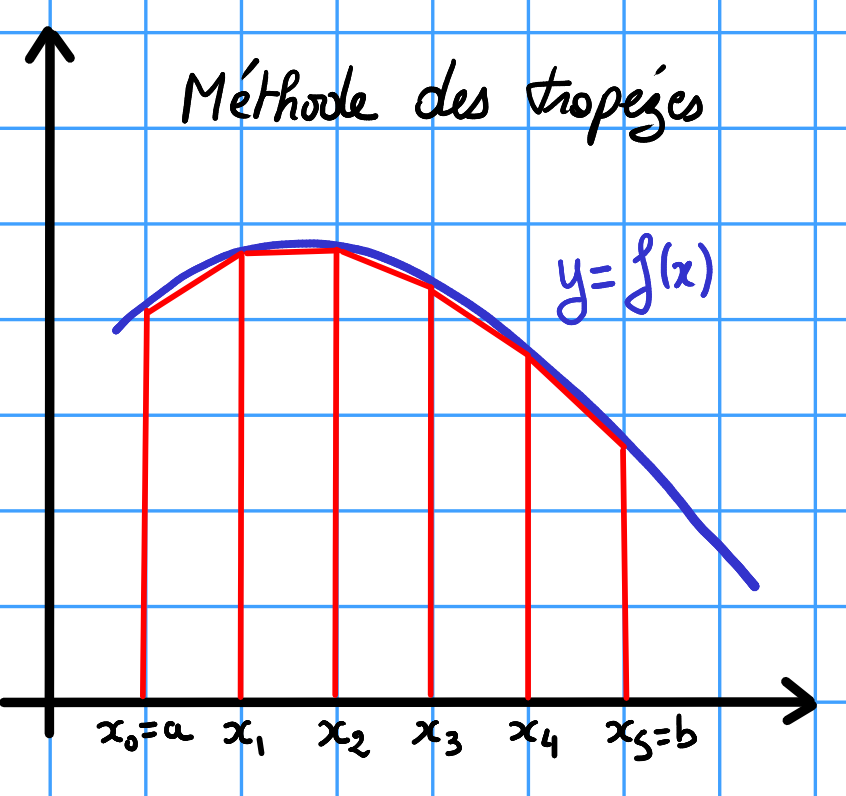 Méthode des trapézes
y = f(x)
x₀=a x₁ x₂ x₃ x₄ x₅=b